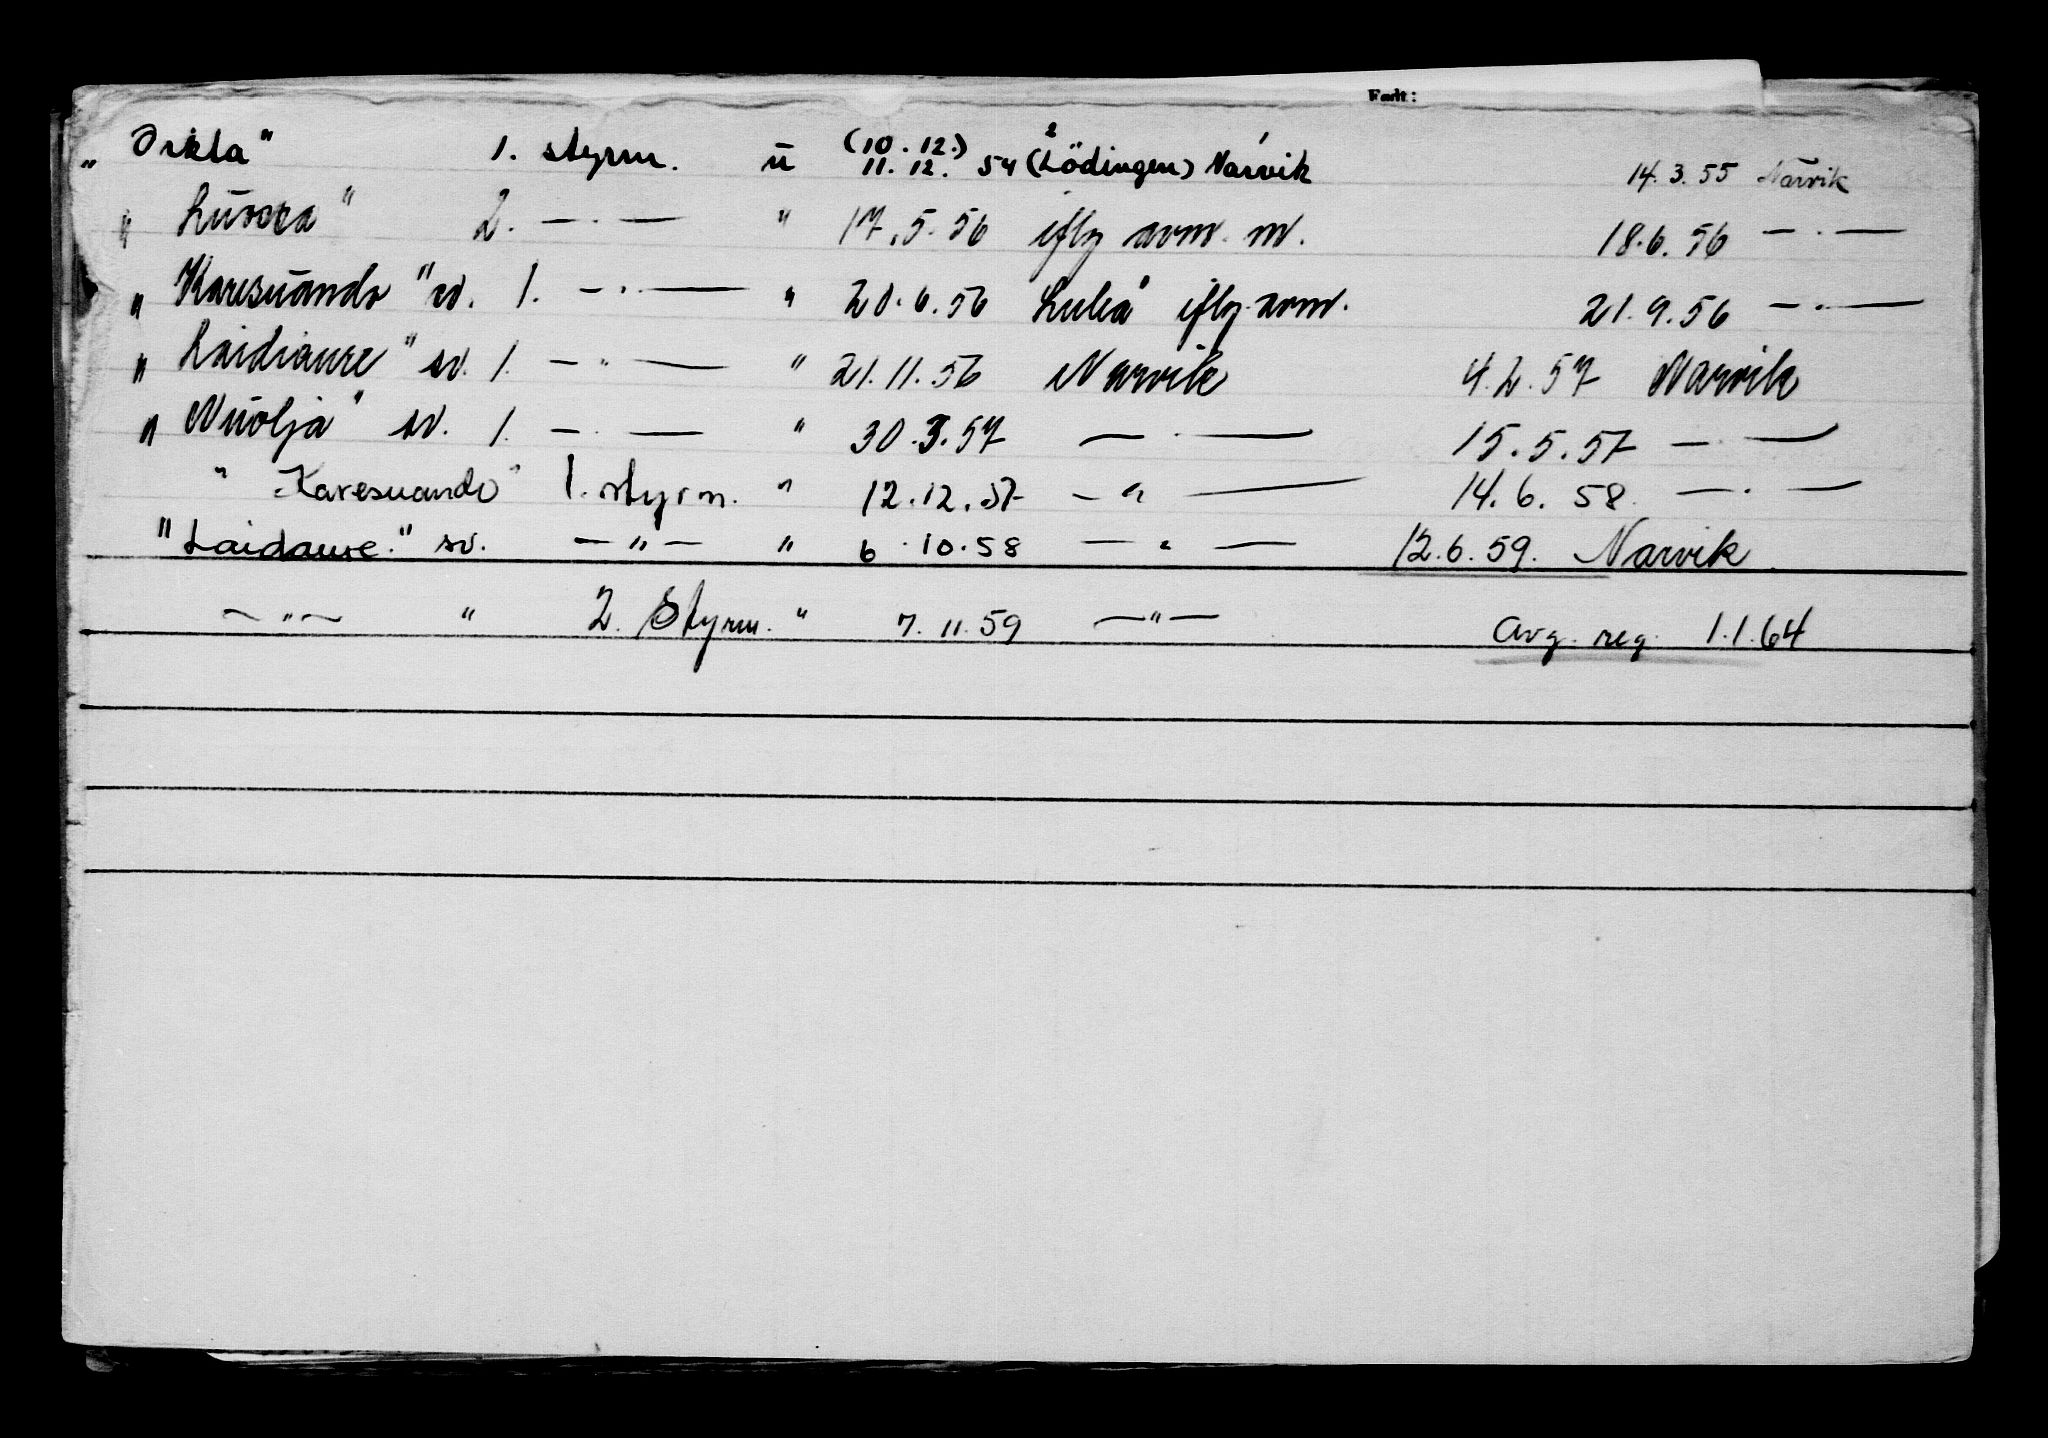 Født:
„ Orkla" 1. styrm. u (10.12.) 11.12. 54 (Lödingen) Narvik 14.3.55 Narvik
„ Luossa" 2. — · — " 17.5.56 iflg arm. m. 18.6.56 — · —
„ Karesuando" sv. 1. — · — " 20.6.56 Luleå iflg. arm. 21.9.56 — · —
„ Laidiaure" sv. 1. — " — " 21.11.56 Narvik 4.2.57 Narvik
„ Nuolja" sv. 1. — · — " 30.3.57 — · — 15.5.57 — · —
" Karesuando" 1. styrm. " 12.12.57 — " — 14.6.58. — · —
" Laidaure." sv. — " — " 6.10.58 — " — 12.6.59. Narvik
— " — " 2. Styrm. " 7.11.59 — " — avg. reg. 1.1.64